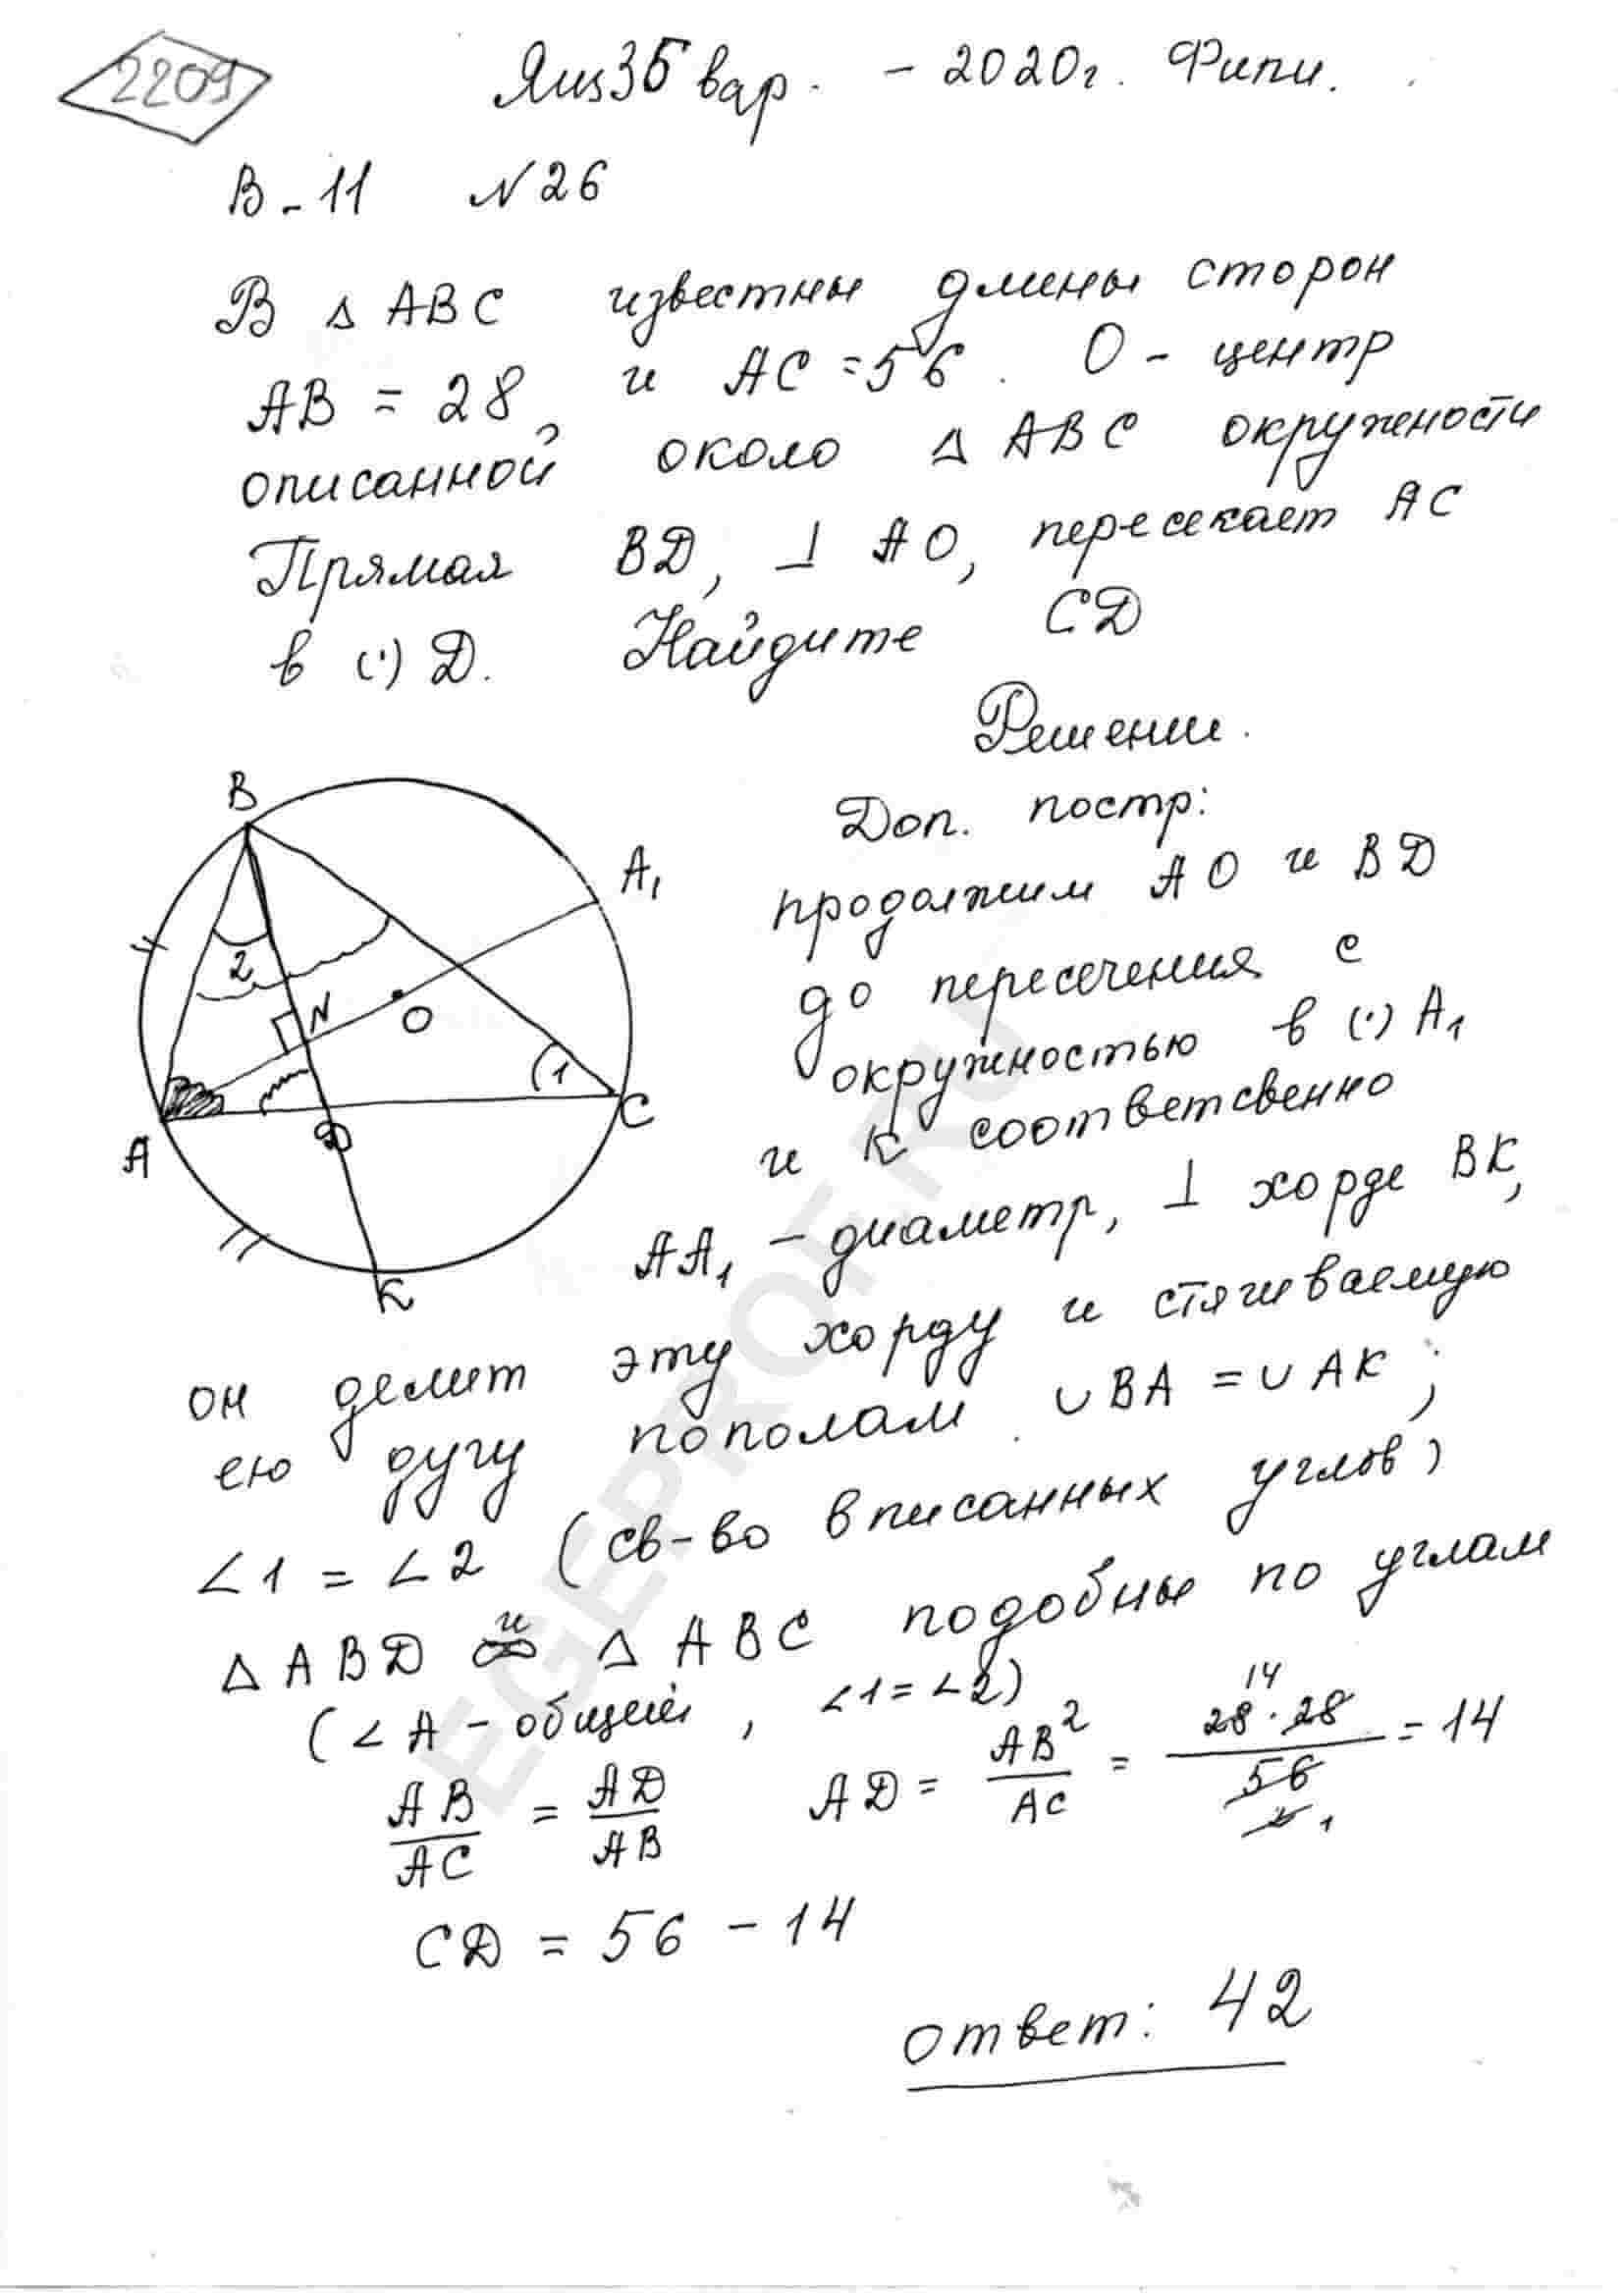 2209
Ящ 36 вар. - 2020г. Фипи.
В-11 №26
В △ ABC известны длины сторон
AB = 28, и AC = 56. O - центр
описанной около △ ABC окружности
Прямая BD, ⊥ AO, пересекает AC
в (·) D. Найдите CD
Решении.
Доп. постр:
продолжим AO и BD
до пересечения с
окружностью в (·) A₁
и K соответсвенно
AA₁ - диаметр, ⊥ хорде BK,
он делит эту хорду и стягиваемую
ею дугу пополам. ∪BA = ∪AK;
∠1 = ∠2 (св-во вписанных углов)
△ ABD и △ ABC подобны по углам
(∠A - общий, ∠1 = ∠2)
AB/AC = AD/AB AD = AB²/AC = 28·28/56 = 14
CD = 56 - 14
ответ: 42
B
A₁
2
N
O
1
A
D
C
K
EGEPROF.RU